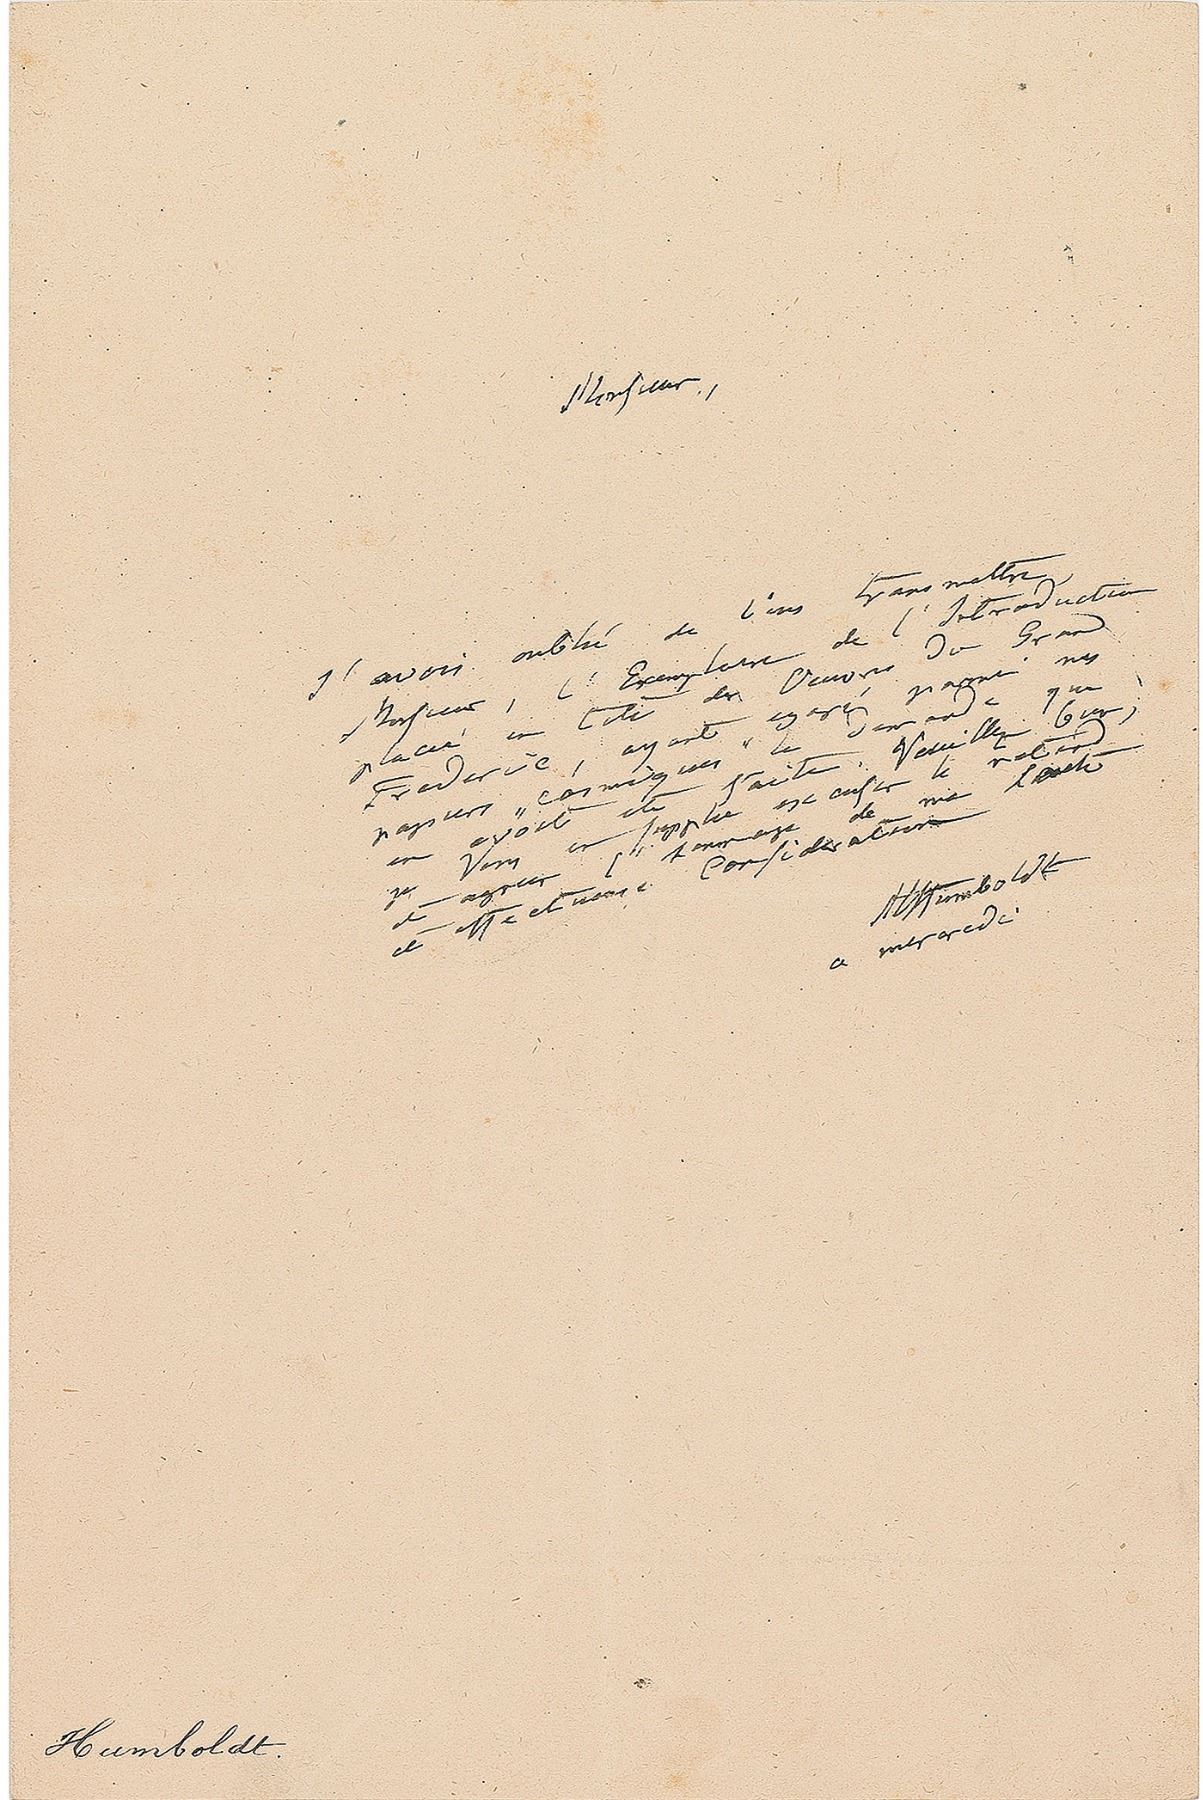 Monsieur,
J'avois oublié de Vous transmettre,
Monsieur, l'Exemplaire de l'Introduction
placée en tête des Oeuvres du Grand
Frederic, ayant egaré parmi mes
papiers "cosmiques" la demande que
en avoit été faite. Veuillez bien,
je Vous en supplie excuser le retard
et agreer l'hommage de ma haute
et affectueuse consideration
AlHumboldt
a mercredi
Humboldt.